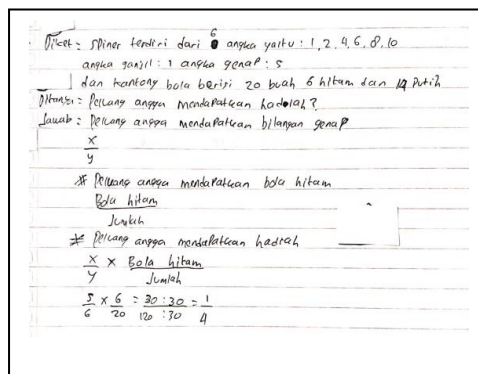 Diket = spiner terdiri dari 6 angka yaitu : 1, 2, 4, 6, 8, 10
angka ganjil : 1 angka genap : 5
dan kantong bola berisi 20 buah 6 hitam dan 14 Putih
Ditanya = Peluang angga mendapatkan hadiah?
Jawab = Peluang angga mendapatkan bilangan genap
x
y
* Peluang angga mendapatkan bola hitam
Bola hitam
Jumlah
* Peluang angga mendapatkan hadiah
x/y × Bola hitam/Jumlah
5/6 × 6/20 = 30 : 30/120 : 30 = 1/4